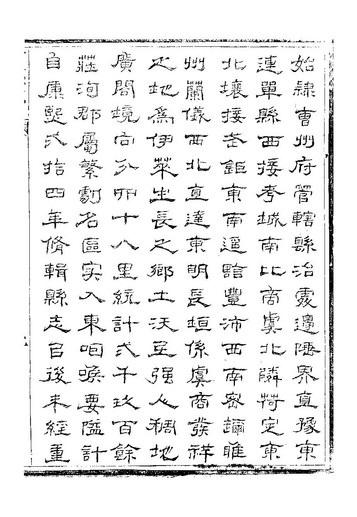 始隸曹州府管轄縣治處邊陲界直豫東
連單縣西接考城南比商虞北隣荷定東
北壤接嘉鉅東南逕豐沛西南密邇睢
州蘭儀西北直達東明長垣係虞商發祥
之地爲伊萊生長之鄉土沃民強人稠地
廣闔境向分卯十八里統計弍千玖百餘
莊洵郡屬繁劇名區實入東咽喉要隘計
自康熙弍拾四年脩輯縣志自後未經重